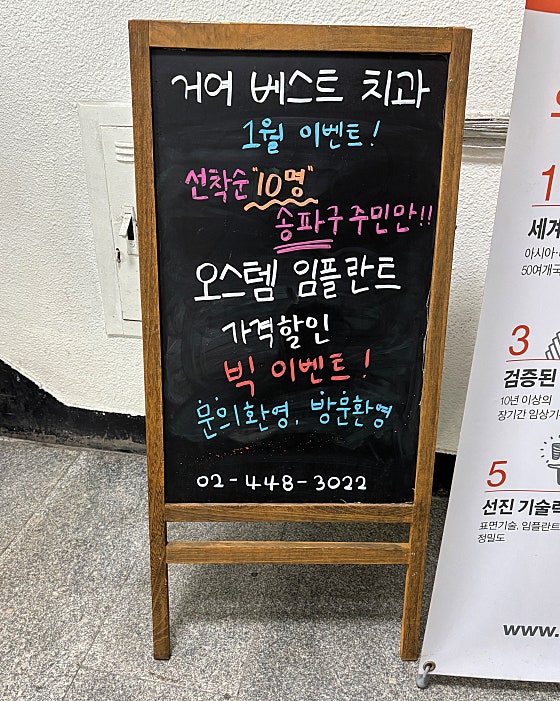 거여 베스트 치과
1월 이벤트!
선착순 "10명"
송파구 주민만!!
오스템 임플란트
가격할인
빅 이벤트!
문의환영, 방문환영
02-448-3022
1
세계
아시아·
50여개국
3
검증된
10년 이상의
장기간 임상기
5
선진 기술력
표면기술, 임플란트
정밀도
www.